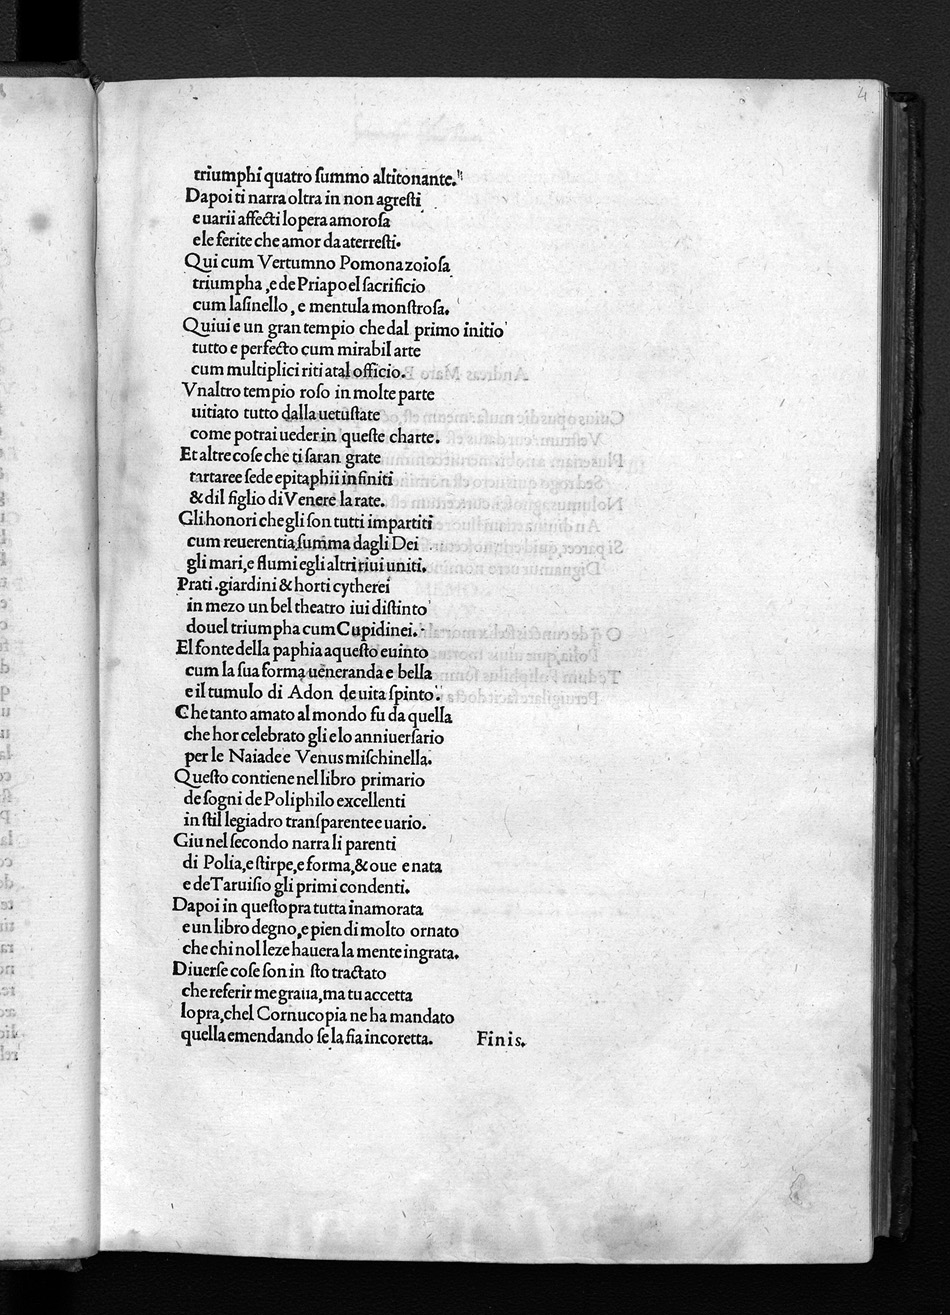 4
triumphi quatro ſummo altitonante.
Dapoi ti narra oltra in non agreſti
e uarii affecti lopera amoroſa
ele ferite che amor da aterreſti.
Qui cum Vertumno Pomona zoioſa
triumpha ,e de Priapo el ſacrificio
cum laſinello , e mentula monſtroſa.
Quiui e un gran tempio che dal primo initio
tutto e perfecto cum mirabil arte
cum multiplici riti atal officio.
Vnaltro tempio roſo in molte parte
uitiato tutto dalla uetuſtate
come potrai ueder in queſte charte.
Et altre coſe che ti ſaran grate
tartaree ſede epitaphii infiniti
& dil figlio di Venere la rate.
Gli honori che gli ſon tutti impartiti
cum reuerentia ſumma dagli Dei
gli mari,e flumi egli altri riui uniti.
Prati .giardini & horti cytherei
in mezo un bel theatro iui diſtinto
douel triumpha cum Cupidinei.
El fonte della paphia aqueſto euinto
cum la ſua forma uēneranda e bella
e il tumulo di Adon de uita ſpinto.
Che tanto amato al mondo fu da quella
che hor celebrato gli e lo anniuerſario
per le Naiade e Venus miſchinella.
Queſto contiene nel libro primario
de ſogni de Poliphilo excellenti
in ſtil legiadro tranſparente e uario.
Giu nel ſecondo narra li parenti
di Polia,e ſtirpe,e forma,& oue e nata
e de Taruiſio gli primi condenti.
Dapoi in queſto pra tutta inamorata
e un libro degno,e pien di molto ornato
che chi nol leze hauera la mente ingrata.
Diuerſe coſe ſon in ſto tractato
che referir me graua,ma tu accetta
lopra,chel Cornucopia ne ha mandato
quella emendando ſe la fia incoretta. Finis.